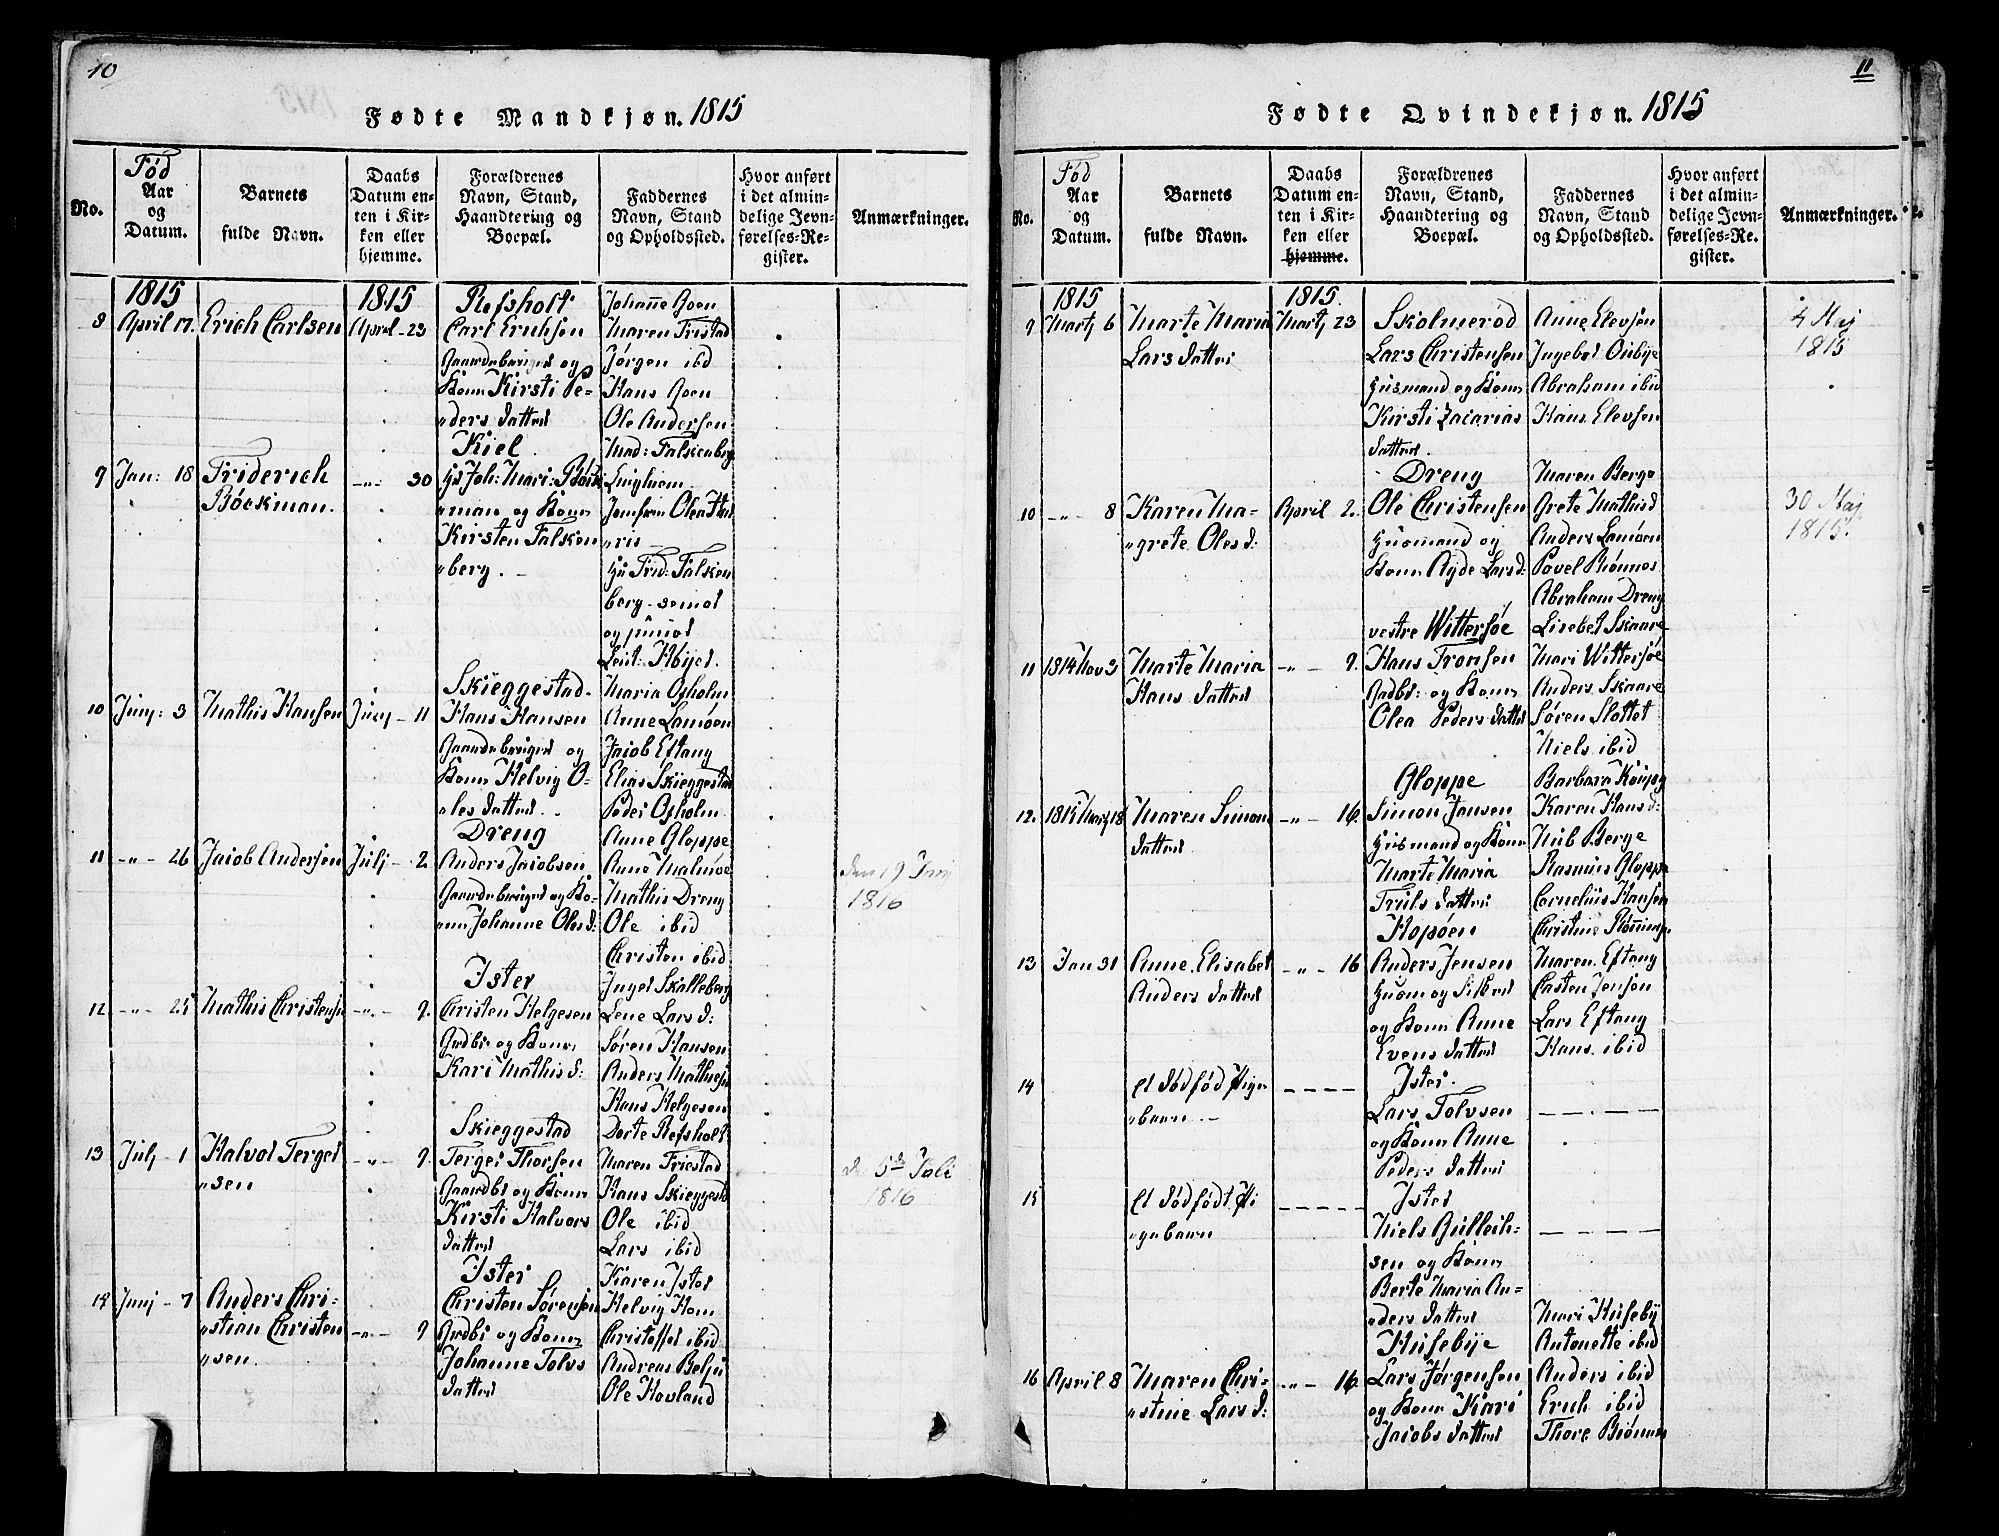 10
Fødte Mandkjøn. 1815
No.
Fød
Aar
og
Datum.
Barnets
fulde Navn.
Daabs
Datum en-
ten i Kir-
ken eller
hjemme.
Forældrenes
Navn, Stand,
Haandtering og
Boepæl.
Faddernes
Navn, Stand
og Opholdssted.
Hvor anført
i det almin-
delige Jevn-
førelses-Re-
gister.
Anmærkninger.
1815
8
April 17.
Erich Carlsen
1815
April - 23
Refsholt
Carl Erichsen
Gaardebruger og
Kone Kirsti Pe-
"ders datter
Johanne Boen
Maren Fristad
Jørgen ibd
Hans Boen
Ole Andersen
9
Jan: 18
Friderich
Böckman.
-"- 30
Kiel
Hr Joh: Mari: Böck
"man og Kone
Kirsten Falken
"berg. -
Mad: Falkenberg
Jomfrue Olea
Hr Frid: Falken
berg. senior
og junior
Leut:
10
Junj: 3
Mathis Hansen
Junj - 11
Skieggestad
Hans Hansen
Gaardebruger og
Kone Helvig O-
"les datter. -
Maria Ofsholm
Anne Lamøen
Jacob Eftang
Elias Skieggestad
Peder Ofsholm
11
-"- 26
Jacob Andersen
Julj - 2
Dreng
Anders Jacobsen
Gaardebruger og Ko-
"ne Johanne Oles d:
Anne Gloppe
Anne Malmøe
Mathis Dreng
Ole ibid
Christen ibid
den 19 Junj
1816
12
-"- 25
Mathis Christensen
-"- 9.
Ister
Christen Helgesen
Grdbr og Kone
Kari Mathis d:
Inger Skalleberg
Lene Lars d:
Søren Hansen
Anders Mathiesen
Hans Helgesen
13
Julj - 1
Halvor Terges
"sen
-"- 9.
Skieggestad
Terger Thorsen
Gaardbr og Kone
Kirsti Halvors
datter
Dorte Refsholt
Maren Friestad
Hans Skieggestd
Ole ibid
Lars ibid
den 5te Juli
1816
14
Junj - 7
Anders Chri-
"stian Christen
"sen.
-"- 9
Ister
Christen Sørensen
Grdbr og Kone
Johanne Tolvs
datter
Karen Ister
Helvig Hom
Christoffer ibid
Andreas
Ole Hovland
11
Fødte Qvindekjøn. 1815
No.
Fød
Aar
og
Datum.
Barnets
fulde Navn.
Daabs
Datum en-
ten i Kir-
ken eller
hjemme.
Forældrenes
Navn, Stand,
Haandtering og
Boepæl.
Faddernes
Navn, Stand
og Opholdssted.
Hvor anført
i det almin-
delige Jevn-
førelses-Re-
gister.
Anmærkninger.
1815
9
Martj 6
Marte Maria
Lars datter
1815.
Martj 23
Skolmerød
Lars Christensen
Huusmand og Kone
Kirsti Zacarias
datter.
Anne Elevsen
Ingebor
Abraham ibid
Hans Elevsen
4 Maj
1815
10
-"- 8
Karen Ma-
"grete Oles d:
April 2.
Dreng
Ole Christensen
Huusmand og
Kone Ryde Lars d:
Maren Berge
Grete Mathisd
Anders Lamøen
Povel Rønnos
Abraham Dreng
30 Maj
1815.
11
1814 Nov 3
Marte Maria
Hans datter
-"- 9.
vestre Wittersøe
Hans Tronsen
Grdbr: og Kone
Olea Peders datter
Lisebet Skaare
Mari Wittersøe
Anders Skaare
Søren Slottet
Niels ibid
12.
1815 Martj 18
Maren Simons
datter
-"- 16.
Gloppe
Simon Jansen
Huusmand og Kone
Marte Maria
Truls datter
Barbara
Karen Hans d:
Berge
Rasmus Gloppe
Cornelius Hansen
13
Jan 31
Anne Elisabet
Anders datter
-"- 16
Klopøen
Anders Jensen
og Kone Anne
Evens datter
Christine Rønninge
Maren Eftang
Casten Jensen
Lars Eftang
Hans ibid
14
et dødfød Pige
"barn. -
- - - -
Ister.
Lars Tolvsen
og Kone Anne
Peders datter
- - - -
15
et dødfødt Pi
"gebarn
- - - - -
Ister
Niels Gulleich-
sen og Kone
Berte Maria An-
"ders datter
- - - -
16
April 8
Maren Chri-
"stine Lars d:
-"- 16.
Husebye
Lars Jørgensen
og Kone Kari
Jacobs datter
Mari Husebÿ
Antonette ibid
Anders ibid
Erich ibid
Thore Biønnes